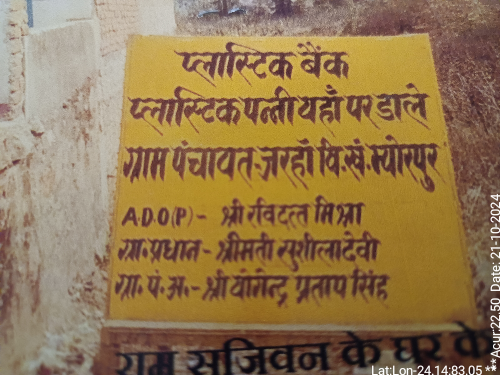 प्लास्टिक बैंक
प्लास्टिक पन्नी यहाँ पर डाले
ग्राम पंचायत-जरहाँ वि.खं. म्योरपुर
A.D.O(P)- श्री रविदत्त मिश्रा
ग्रा. प्रधान - श्रीमती सुशीला देवी
ग्रा. पं. अ. - श्री योगेन्द्र प्रताप सिंह
राम सजिवन के घर के
Lat:Lon-24.14:83.05
**Acur:22.50 Date: 21-10-2024